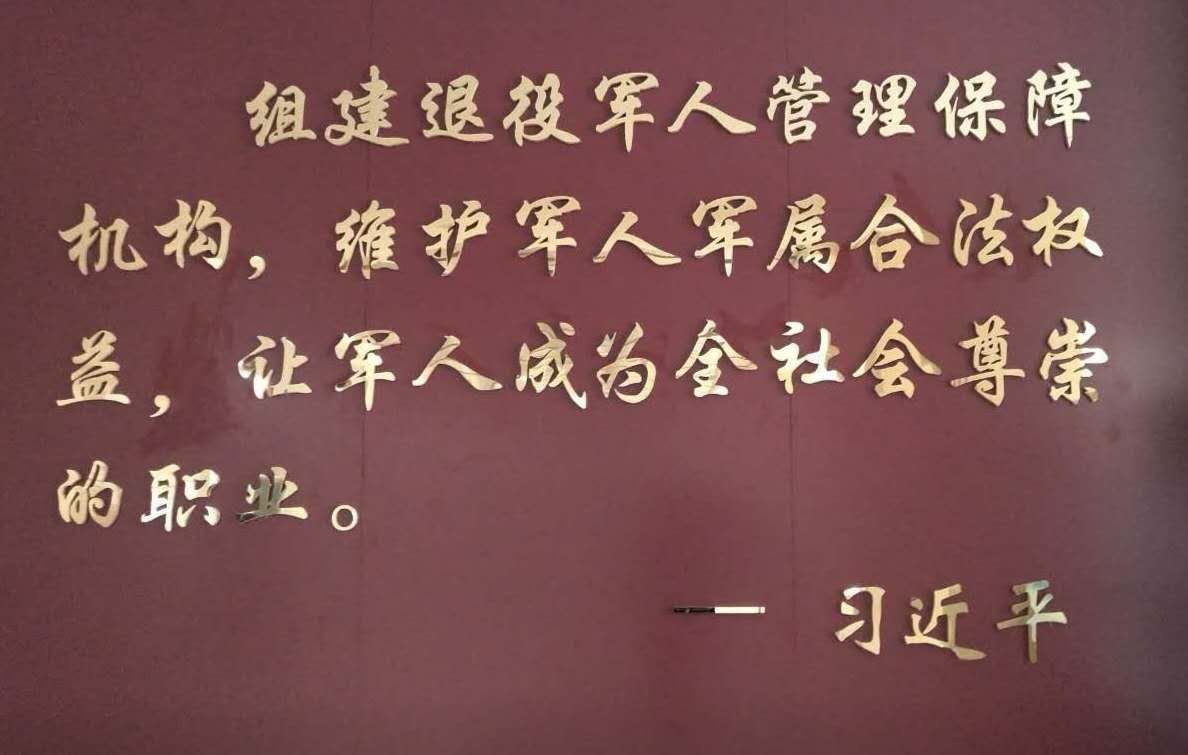 组建退役军人管理保障
机构，维护军人军属合法权
益，让军人成为全社会尊崇
的职业。
— 习近平